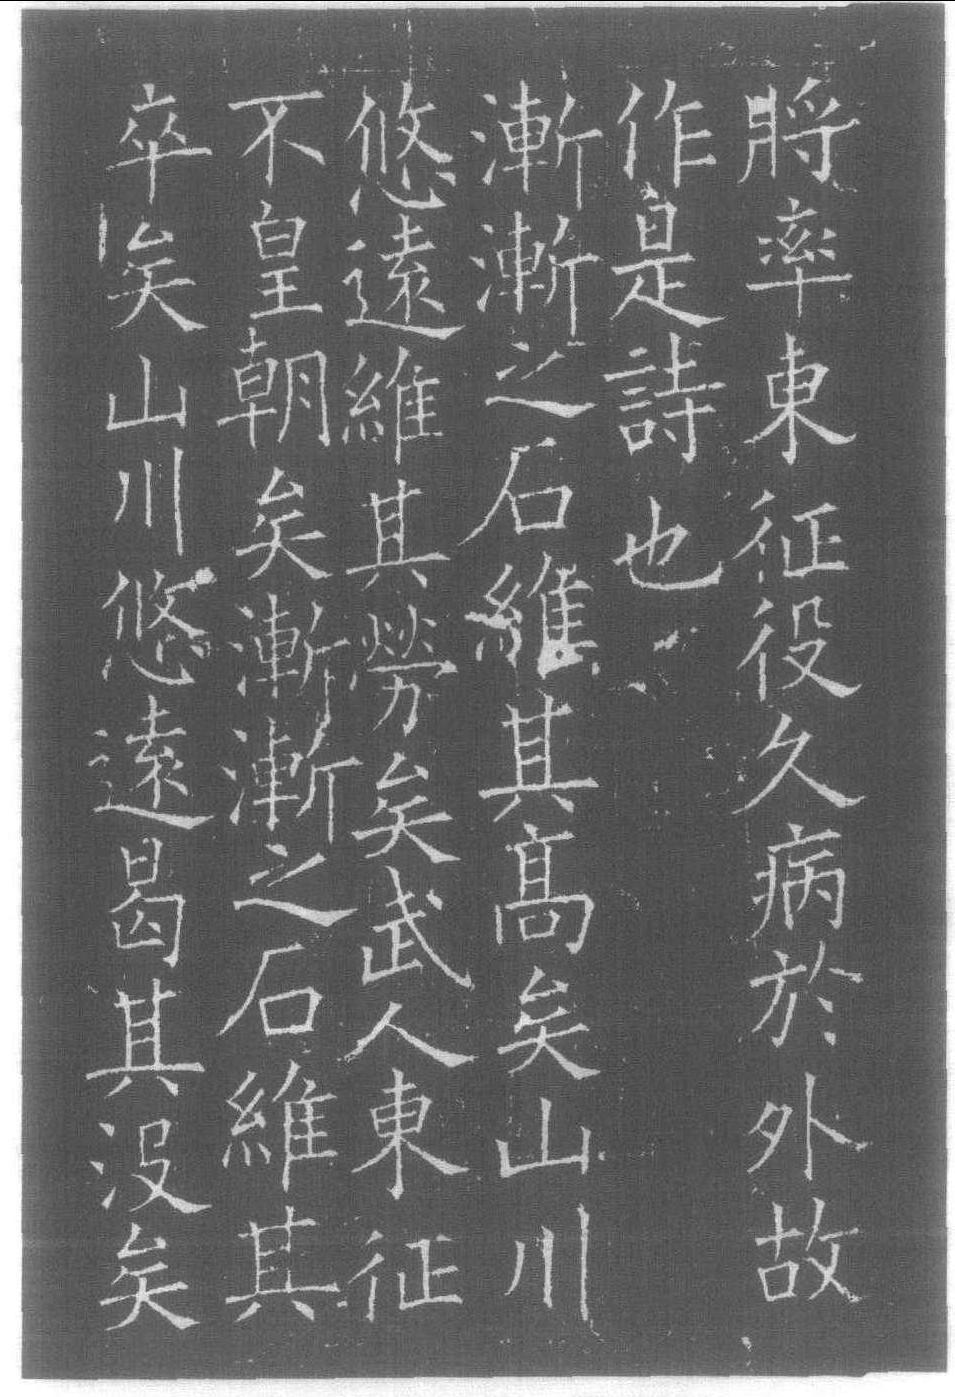 將率東征役久病於外故
作是詩也
漸漸之石維其高矣山川
悠遠維其勞矣武人東征
不皇朝矣漸漸之石維其
卒矣山川悠遠曷其没矣